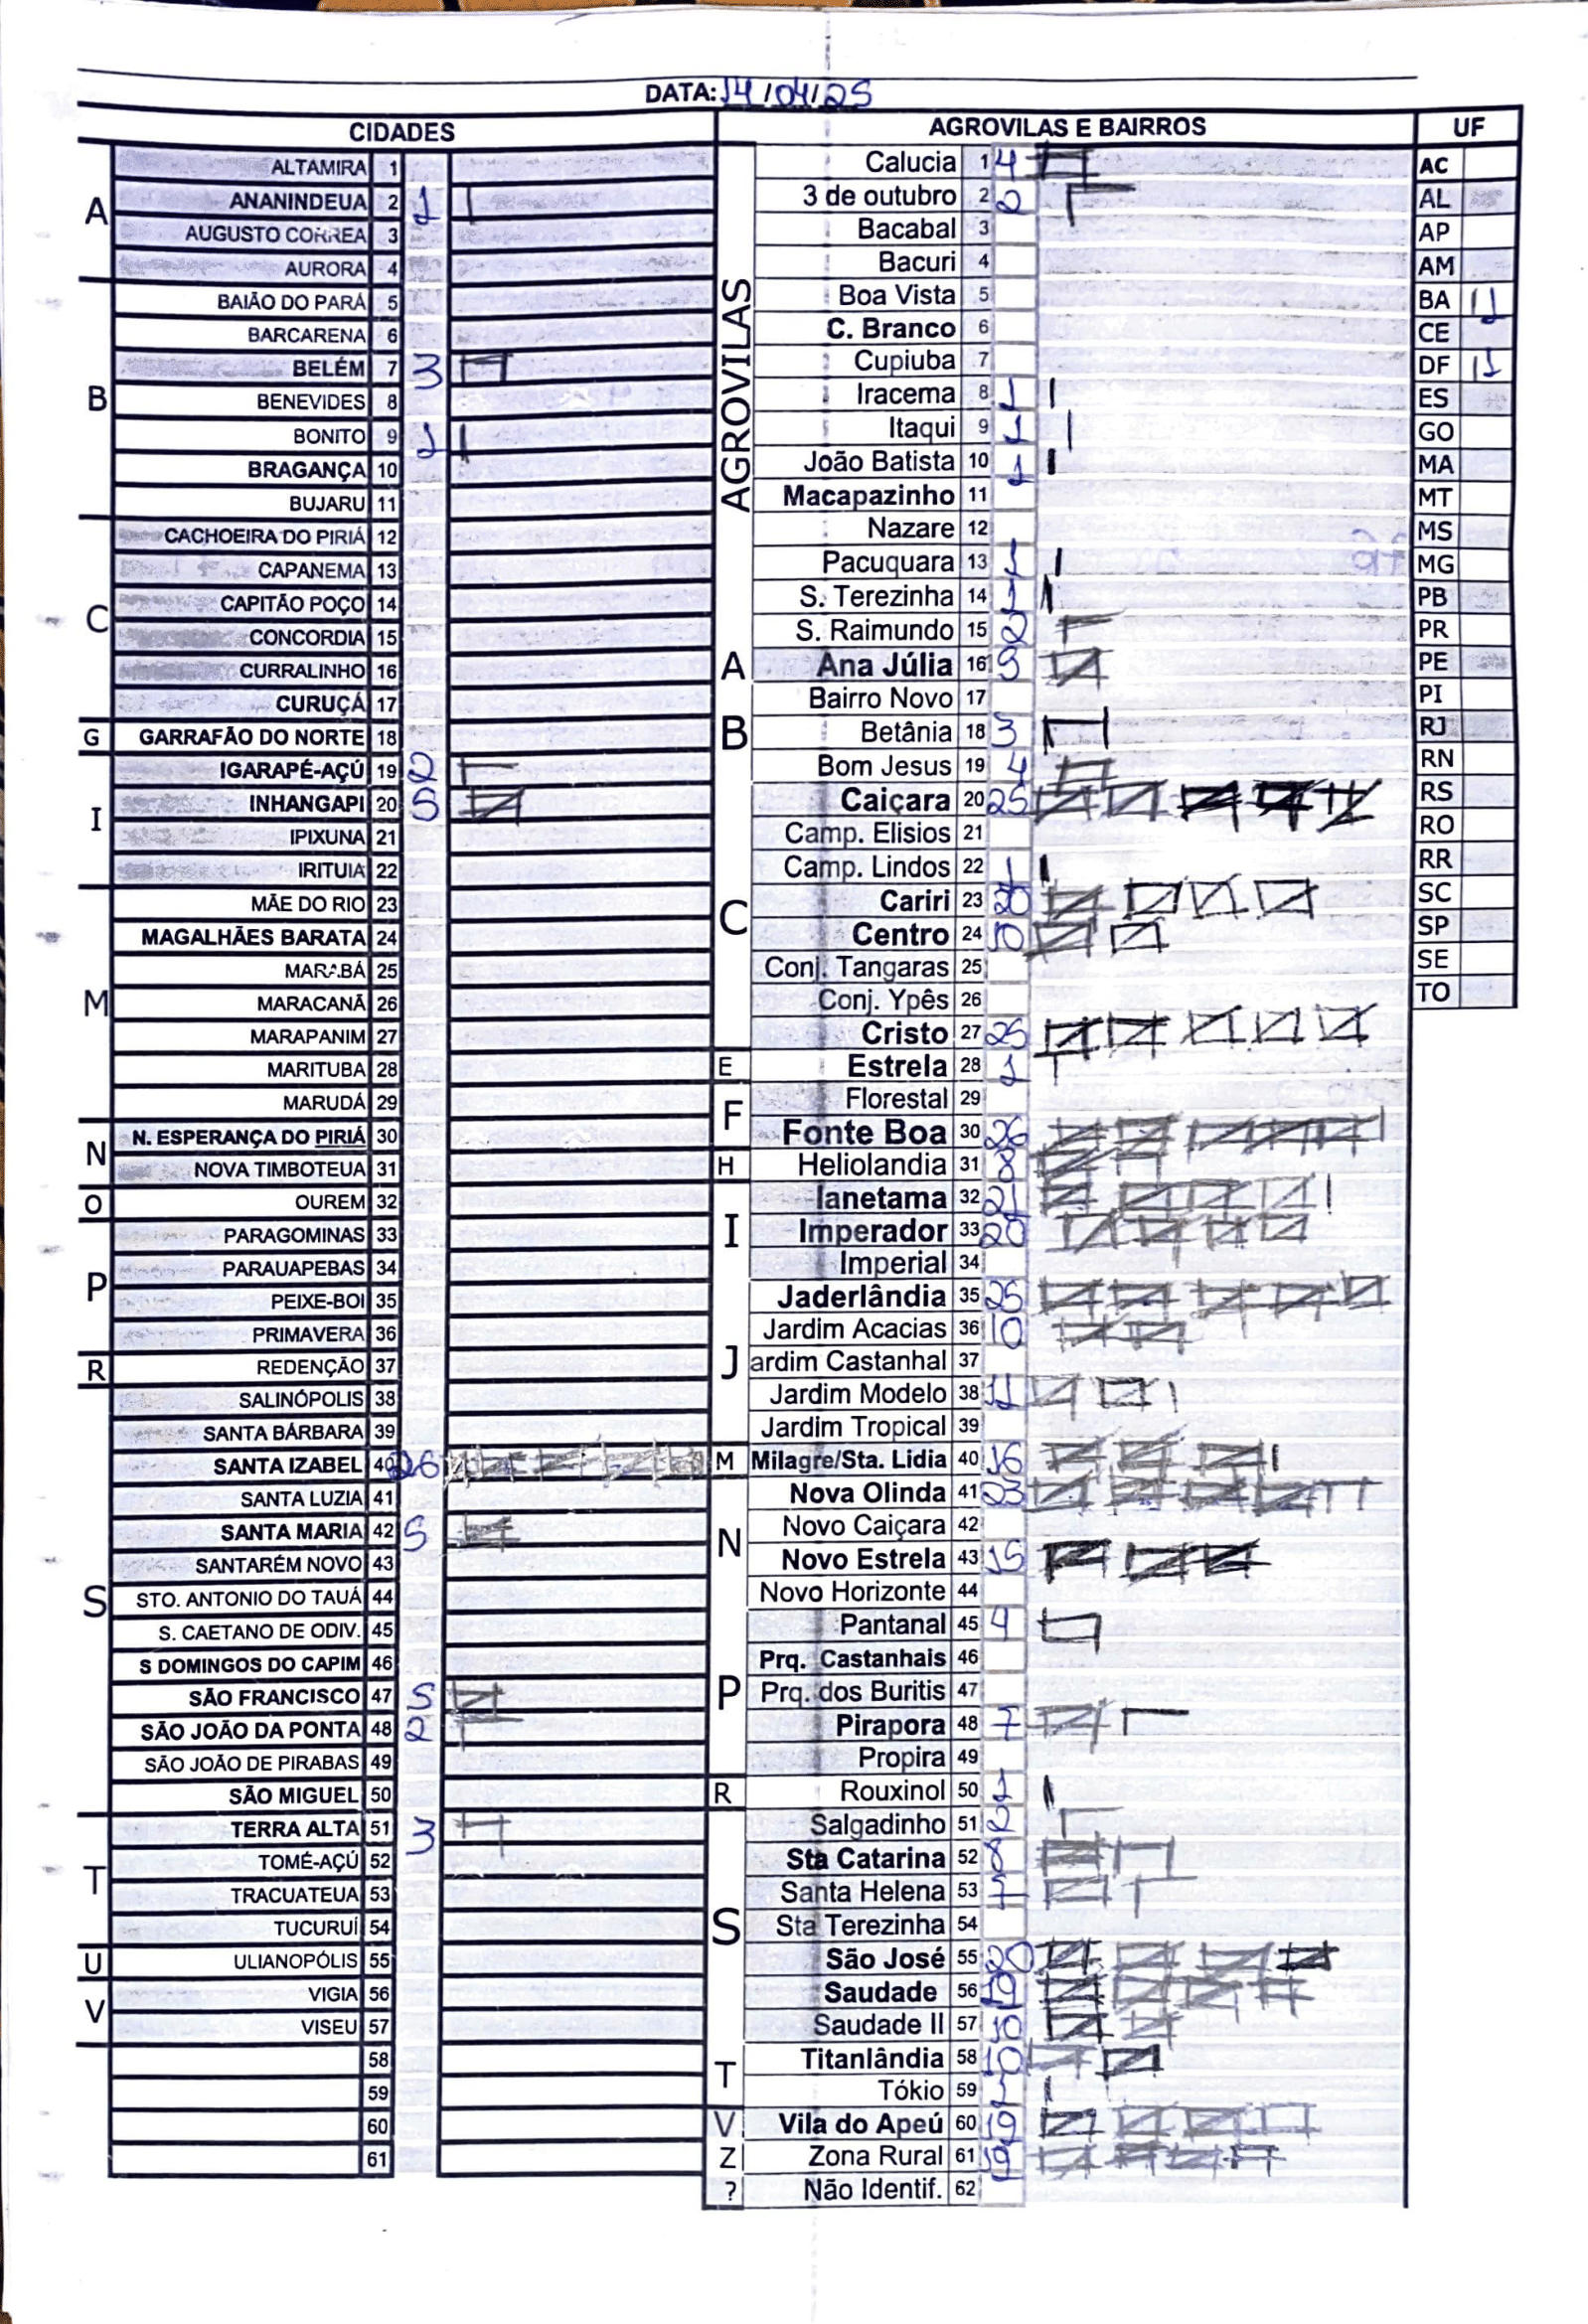 DATA: 14/04/25
CIDADES
A
ALTAMIRA 1
ANANINDEUA 2 1
AUGUSTO CORREA 3
AURORA 4
B
BAIÃO DO PARÁ 5
BARCARENA 6
BELÉM 7 3
BENEVIDES 8
BONITO 9 1
BRAGANÇA 10
BUJARU 11
C
CACHOEIRA DO PIRIÁ 12
CAPANEMA 13
CAPITÃO POÇO 14
CONCORDIA 15
CURRALINHO 16
CURUÇÁ 17
G
GARRAFÃO DO NORTE 18
I
IGARAPÉ-AÇÚ 19 2
INHANGAPI 20 5
IPIXUNA 21
IRITUIA 22
M
MÃE DO RIO 23
MAGALHÃES BARATA 24
MARABÁ 25
MARACANÃ 26
MARAPANIM 27
MARITUBA 28
MARUDÁ 29
N
N. ESPERANÇA DO PIRIÁ 30
NOVA TIMBOTEUA 31
O
OUREM 32
P
PARAGOMINAS 33
PARAUAPEBAS 34
PEIXE-BOI 35
PRIMAVERA 36
R
REDENÇÃO 37
S
SALINÓPOLIS 38
SANTA BÁRBARA 39
SANTA IZABEL 40 26
SANTA LUZIA 41
SANTA MARIA 42 5
SANTARÉM NOVO 43
STO. ANTONIO DO TAUÁ 44
S. CAETANO DE ODIV. 45
S DOMINGOS DO CAPIM 46
SÃO FRANCISCO 47 5
SÃO JOÃO DA PONTA 48 2
SÃO JOÃO DE PIRABAS 49
SÃO MIGUEL 50
T
TERRA ALTA 51 3
TOMÉ-AÇÚ 52
TRACUATEUA 53
TUCURUÍ 54
U
ULIANOPÓLIS 55
V
VIGIA 56
VISEU 57
58
59
60
61
AGROVILAS E BAIRROS
AGROVILAS
Calucia 1 4
3 de outubro 2 2
Bacabal 3
Bacuri 4
Boa Vista 5
C. Branco 6
Cupiuba 7
Iracema 8 1
Itaqui 9 1
João Batista 10 1
Macapazinho 11
Nazare 12
Pacuquara 13 1
S. Terezinha 14 1
S. Raimundo 15 2
A
Ana Júlia 16 5
B
Bairro Novo 17
Betânia 18 3
Bom Jesus 19 4
C
Caiçara 20 25
Camp. Elisios 21
Camp. Lindos 22 1
Cariri 23 20
Centro 24 10
Conj. Tangaras 25
Conj. Ypês 26
Cristo 27 25
E
Estrela 28 1
F
Florestal 29
Fonte Boa 30 26
H
Heliolandia 31 8
I
Ianetama 32 21
Imperador 33 20
Imperial 34
J
Jaderlândia 35 25
Jardim Acacias 36 10
ardim Castanhal 37
Jardim Modelo 38 11
Jardim Tropical 39
M
Milagre/Sta. Lidia 40 16
N
Nova Olinda 41 23
Novo Caiçara 42
Novo Estrela 43 15
Novo Horizonte 44
P
Pantanal 45 4
Prq. Castanhais 46
Prq. dos Buritis 47
Pirapora 48 7
Propira 49
R
Rouxinol 50 1
S
Salgadinho 51 2
Sta Catarina 52 8
Santa Helena 53 7
Sta Terezinha 54
São José 55 20
Saudade 56 19
Saudade II 57 10
T
Titanlândia 58 10
Tókio 59 1
V
Vila do Apeú 60 19
Z
Zona Rural 61 19
?
Não Identif. 62
UF
AC
AL
AP
AM
BA 1
CE
DF 1
ES
GO
MA
MT
MS
MG
PB
PR
PE
PI
RJ
RN
RS
RO
RR
SC
SP
SE
TO